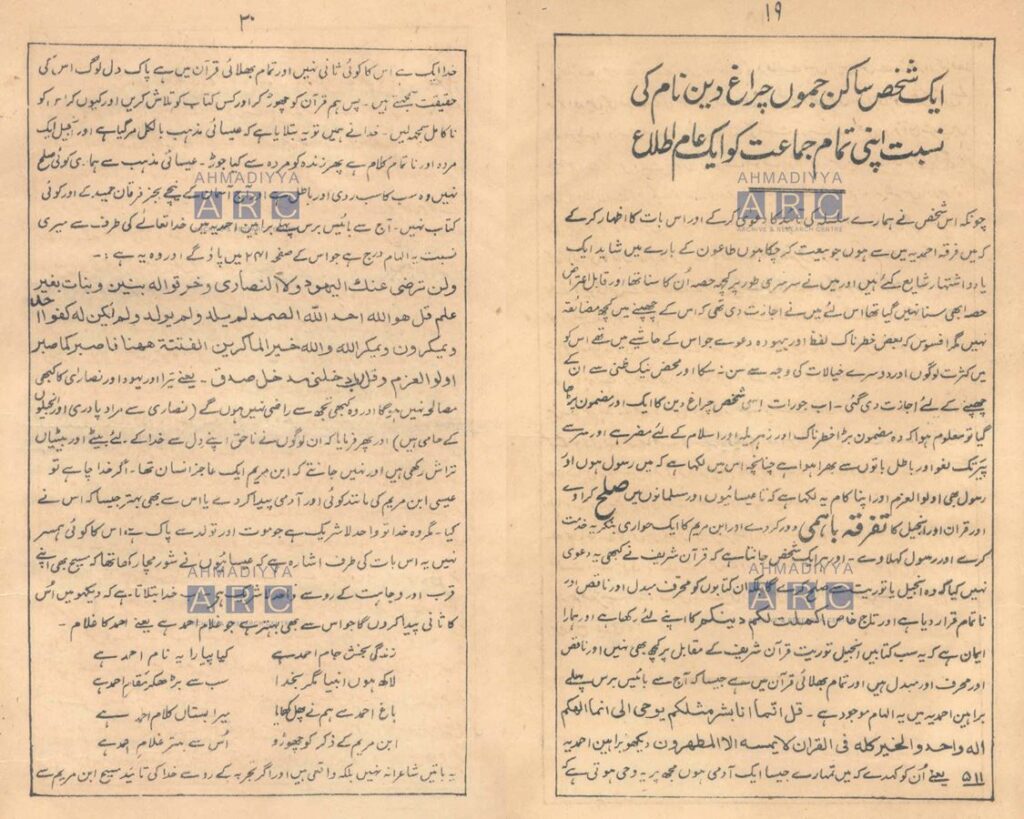 ۱۹
ایک شخص ساکن جموں چراغ دین نام کی
نسبت اپنی تمام جماعت کو ایک عام اطلاع
AHMADIYYA
ARC
ARCHIVE & RESEARCH CENTRE
چونکہ اس شخص نے ہمارے سلسلہ کی تائید کا دعویٰ کرکے اور اس بات کا اظہار کرکے
کہ میں فرقہ احمدیہ میں سے ہوں جو بیعت کرچکا ہوں طاعون کے بارے میں شاید ایک
یا دو اشتہار شایع کئے ہیں اور میں نے سرسری طور پر کچھ حصہ اُن کا سنا تھا اور قابل اعتراض
حصہ ابھی سنا نہیں گیا تھا اس لئے میں نے اجازت دی تھی کہ اس کے چھپنے میں کچھ مضائقہ
نہیں مگر افسوس کہ بعض خطرناک لفظ اور بیہودہ دعوے جو اس کے حاشیے میں تھے اس کو
میں کثرت لوگوں اور دوسرے خیالات کی وجہ سے سن نہ سکا اور محض نیک ظنی سے ان کے
چھپنے کے لئے اجازت دی گئی۔ اب جو رات اسی شخص چراغ دین کا ایک اور مضمون پڑھا
گیا تو معلوم ہوا کہ وہ مضمون بڑا خطرناک اور زہریلا اور اسلام کے لئے مضر ہے اور سر سے
پیر تک لغو اور باطل باتوں سے بھرا ہوا ہے چنانچہ اس میں لکھا ہے کہ میں رسول ہوں اور
رسول بھی اولوالعزم اور اپنا کام یہ لکھا ہے کہ تا عیسائیوں اور مسلمانوں میں صلح کراوے
اور قرآن اور انجیل کا تفرقہ باہمی دور کردے اور ابن مریم کا ایک حواری بنکر یہ خدمت
کرے اور رسول کہلاوے۔ اور ہر ایک شخص جانتا ہے کہ قرآن شریف نے کبھی یہ دعوی
نہیں کیا کہ وہ انجیل یا توریت سے صلح کرے گا بلکہ ان کتابوں کو محرف مبدل اور ناقص اور
AHMADIYYA
ARC
ناتمام قرار دیا ہے اور تاج خاص اکملت لکم دینکم کا اپنے لئے رکھا ہے اور ہمارا
ایمان ہے کہ یہ سب کتابیں انجیل توریت قرآن شریف کے مقابل پر کچھ بھی نہیں اور ناقص
اور محرف اور مبدل ہیں اور تمام بھلائی قرآن میں ہے جیسا کہ آج سے بائیس برس پہلے
براہین احمدیہ میں یہ الہام موجود ہے۔ قل انما انا بشر مثلکم یوحی الی انما الھکم
الہ واحد والخیر کلہ فی القران لا یمسہ الا المطھرون دیکھو براہین احمدیہ
۵۱۱ یعنے اُن کو کہدے کہ میں تمہارے جیسا ایک آدمی ہوں مجھ پر یہ وحی ہوتی ہے کہ
۲۰
خدا ایک ہے اس کا کوئی ثانی نہیں اور تمام بھلائی قرآن میں ہے پاک دل لوگ اس کی
حقیقت سمجھتے ہیں۔ پس ہم قرآن کو چھوڑ کر اور کس کتاب کو تلاش کریں اور کیوں کر اس کو
ناکامل سمجھ لیں۔ خدا نے ہمیں تو یہ بتلایا ہے کہ عیسائی مذہب بالکل مرگیا ہے اور انجیل ایک
مردہ اور ناتمام کلام ہے پھر زندہ کو مردہ سے کیا جوڑ۔ عیسائی مذہب سے ہماری کوئی صلح
AHMADIYYA
ARC
نہیں وہ سب کا سب ردی اور باطل ہے اور آج آسمان کے نیچے بجز فرقان حمید کے اور کوئی
کتاب نہیں۔ آج سے بائیس برس پہلے براہین احمدیہ میں خدا تعالےٰ کی طرف سے میری
نسبت یہ الہام درج ہے جو اس کے صفحہ ۲۴۱ میں پاؤگے اور وہ یہ ہے:۔
ولن ترضی عنک الیھود ولا النصاری وخرقوا لہ بنین وبنات بغیر
علم قل ھو اللہ احد اللہ الصمد لم یلد ولم یولد ولم یکن لہ کفوا احد
ویمکرون ویمکر اللہ واللہ خیر الماکرین الفتنۃ ھھنا فاصبر کما صبر
اولوا العزم وقل رب ادخلنی مدخل صدق۔ یعنے تیرا اور یہود اور نصاریٰ کا کبھی
مصالحہ نہیں ہوگا اور وہ کبھی تجھ سے راضی نہیں ہوں گے (نصاریٰ سے مراد پادری اور انجیلوں
کے حامی ہیں) اور پھر فرمایا کہ ان لوگوں نے ناحق اپنے دل سے خدا کے لئے بیٹے اور بیٹیاں
تراش رکھی ہیں اور نہیں جانتے کہ ابن مریم ایک عاجز انسان تھا۔ اگر خدا چاہے تو
عیسیٰ ابن مریم کی مانند کوئی اور آدمی پیدا کردے یا اس سے بھی بہتر جیسا کہ اس نے
کیا۔ مگر وہ خدا تو واحد لاشریک ہے جو موت اور تولد سے پاک ہے اس کا کوئی ہمسر
نہیں یہ اس بات کی طرف اشارہ ہے کہ عیسائیوں نے شور مچا رکھا تھا کہ مسیح بھی اپنے
AHMADIYYA
ARC
قرب اور وجاہت کے روسے واحد لاشریک ہے۔ اب خدا بتلاتا ہے کہ دیکھو میں اُس
کا ثانی پیدا کروں گا جو اس سے بھی بہتر ہے جو غلام احمد ہے یعنے احمد کا غلام۔
زندگی بخش جام احمد ہے کیا پیارا یہ نام احمد ہے
لاکھ ہوں انبیا مگر بخدا سب سے بڑھکر مقام احمد ہے
باغ احمد سے ہم نے پھل کھایا میرا بستاں کلام احمد ہے
ابن مریم کے ذکر کو چھوڑو اُس سے بہتر غلام احمد ہے
یہ باتیں شاعرانہ نہیں بلکہ واقعی ہیں اور اگر تجربہ کے رو سے خدا کی تائید مسیح ابن مریم سے